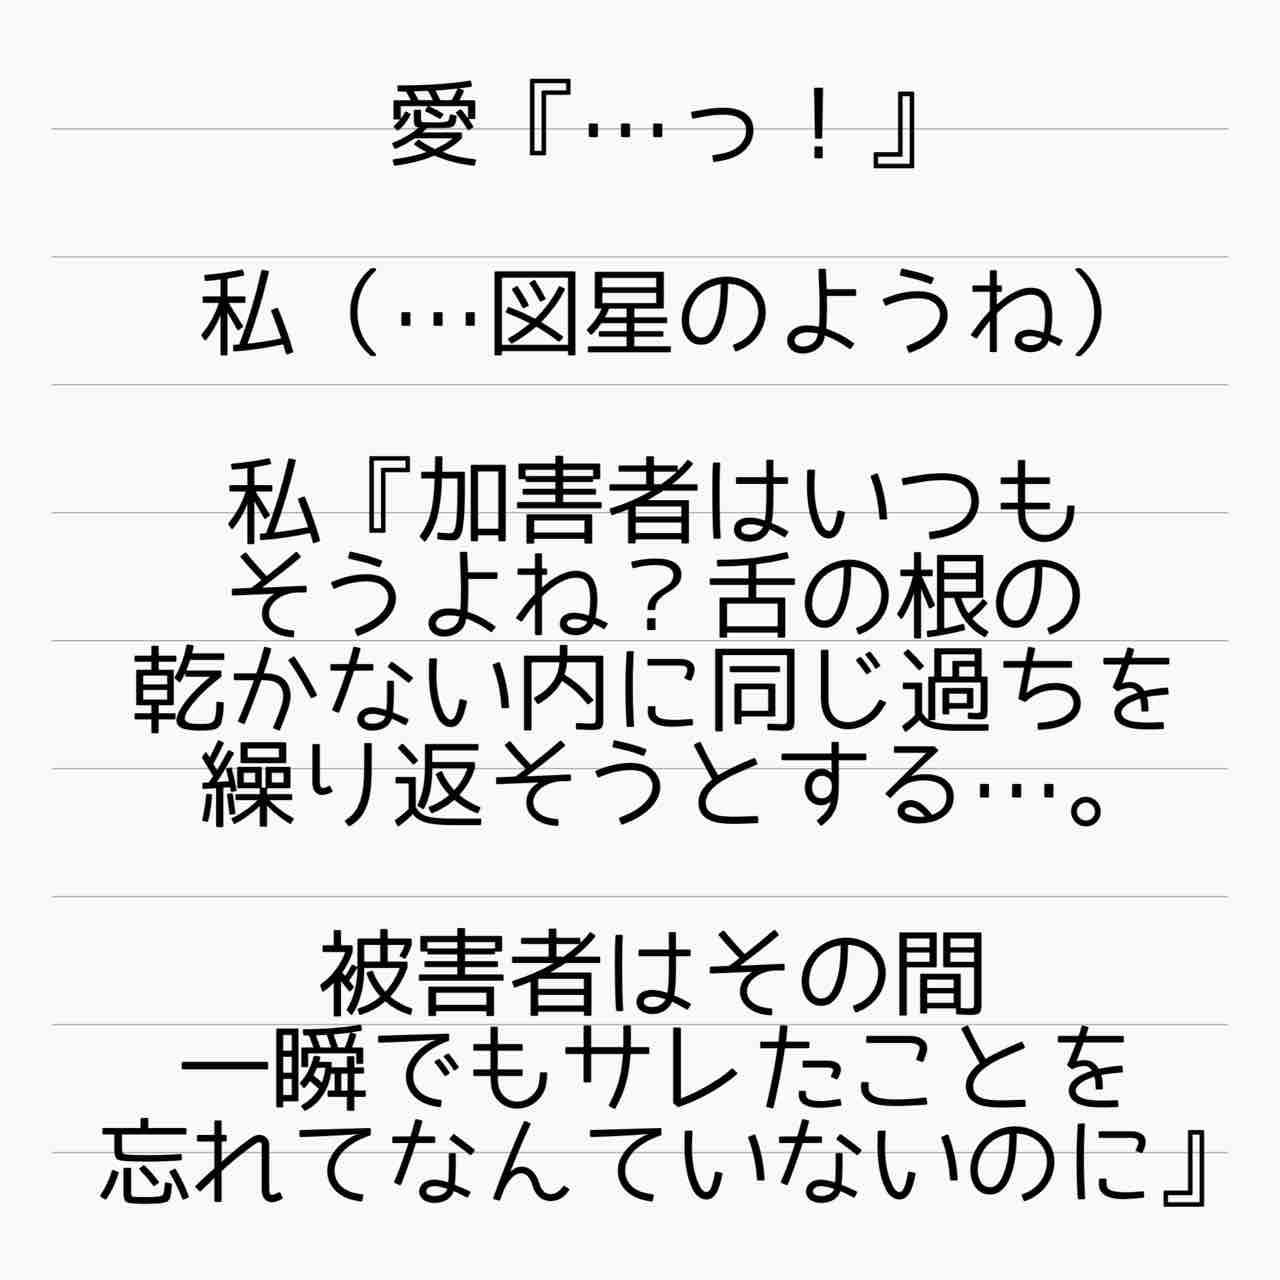 愛『…っ！』
私（…図星のようね）
私『加害者はいつも
そうよね？舌の根の
乾かない内に同じ過ちを
繰り返そうとする…。
被害者はその間
一瞬でもサレたことを
忘れてなんていないのに』